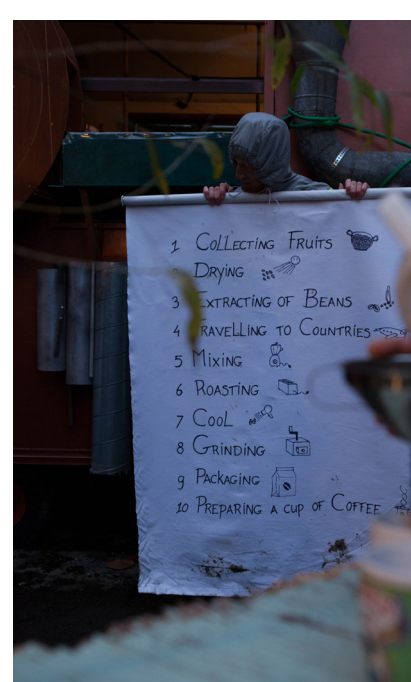 1 Collecting Fruits
2 Drying
3 Extracting of Beans
4 Travelling to Countries
5 Mixing
6 Roasting
7 Cool
8 Grinding
9 Packaging
10 Preparing a cup of Coffee